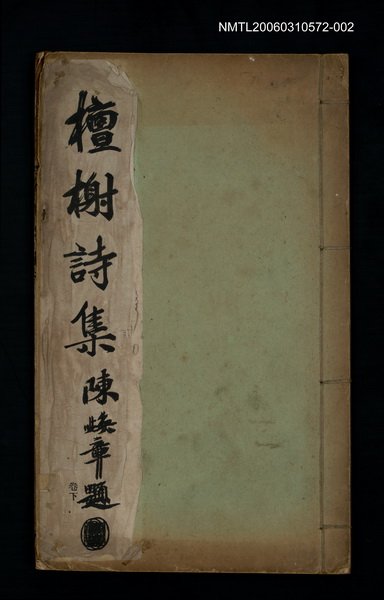 NMTL20060310572-002
檀榭詩集
陳煥章題
卷下